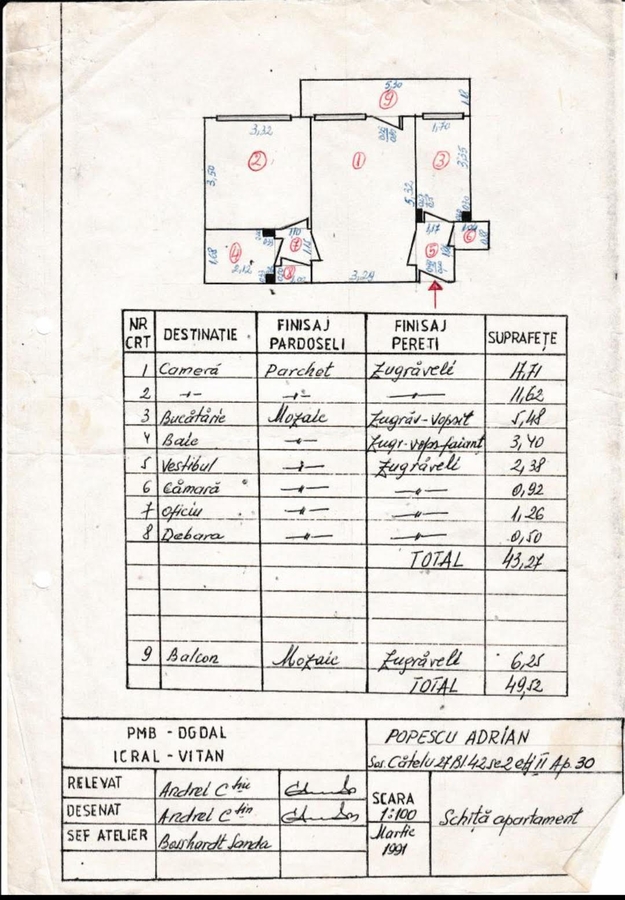 5,30
9
1,18
3,32
1,70
2
1
3
3,50
3,35
5,32
4
1,10
7
1,17
5
6
1,68
2,12
8
3,29
NR CRT DESTINAȚIE FINISAJ PARDOSELI FINISAJ PERETI SUPRAFEȚE
1 Cameră Parchet Zugrăveli 17,71
2 -"- -"- -"- 11,62
3 Bucătărie Mozaic Zugrăv-Vopsit 5,48
4 Baie -"- Zugr-vops-faianț 3,40
5 Vestibul -"- Zugrăveli 2,38
6 Cămară -"- -"- 0,92
7 Oficiu -"- -"- 1,26
8 Debara -"- -"- 0,50
TOTAL 43,27
9 Balcon Mozaic Zugrăveli 6,25
TOTAL 49,52
PMB - DGDAL
ICRAL - VITAN
POPESCU ADRIAN
Sos. Cățelu 27 Bl 42 sc 2 etj II Ap. 30
RELEVAT Andrei C-tin
DESENAT Andrei C-tin
SEF ATELIER Bosshardt Sanda
SCARA
1:100
Martie
1991
Schiță apartament